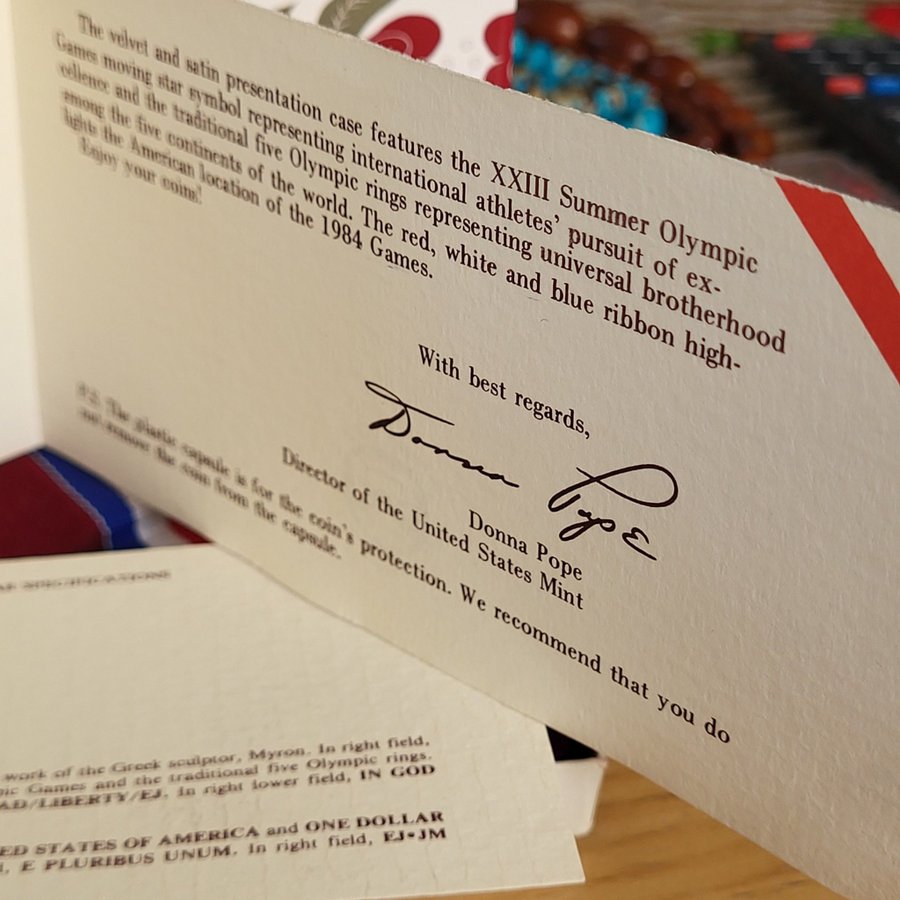 The velvet and satin presentation case features the XXIII Summer Olympic
Games moving star symbol representing international athletes' pursuit of ex-
cellence and the traditional five Olympic rings representing universal brotherhood
among the five continents of the world. The red, white and blue ribbon high-
lights the American location of the 1984 Games.
Enjoy your coins!
With best regards,
Donna Pope
Donna Pope
Director of the United States Mint
P.S. The plastic capsule is for the coin's protection. We recommend that you do
not remove the coin from the capsule.
SPECIFICATIONS
work of the Greek sculptor, Myron. In right field,
pic Games and the traditional five Olympic rings.
AD/LIBERTY/EJ. In right lower field, IN GOD
ED STATES OF AMERICA and ONE DOLLAR
E PLURIBUS UNUM. In right field, EJ•JM